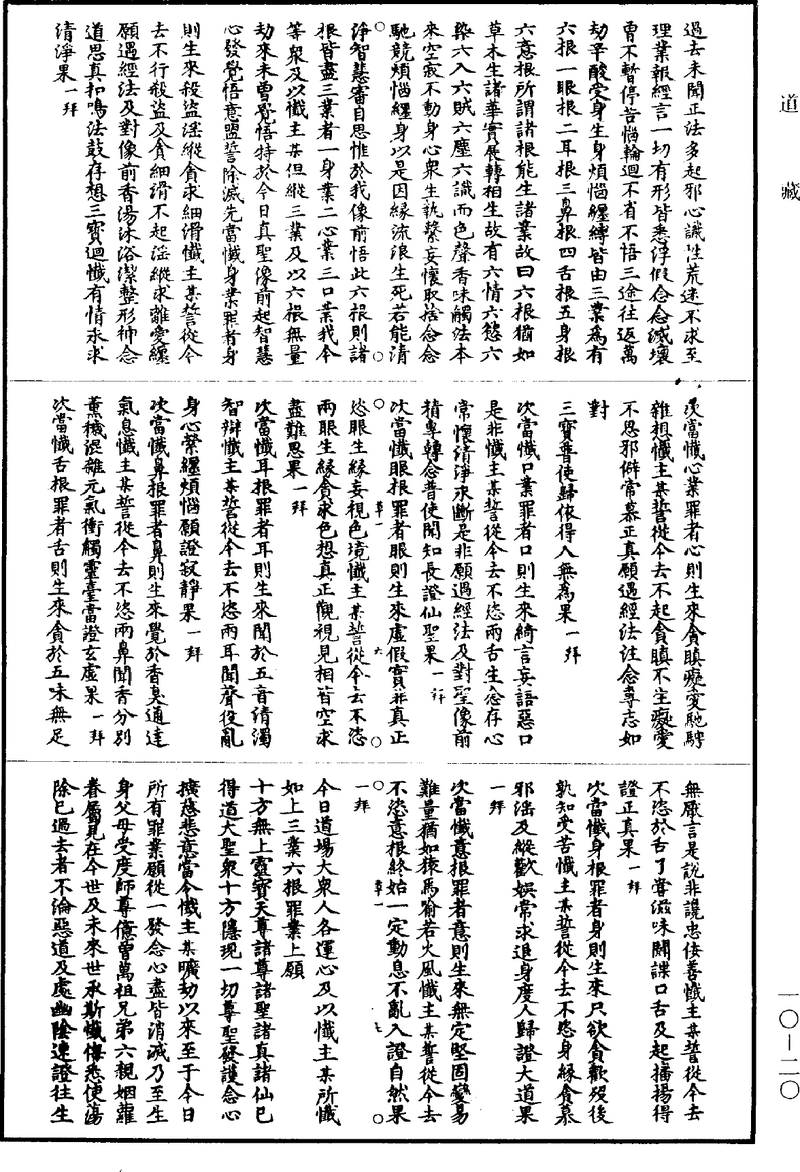 道藏
一〇－二〇
過去未聞正法多起邪心識性荒迷不求至
理業報經言一切有形皆悉浮假念念滅壞
曾不暫停苦惱輪迴不省不悟三途往返萬
劫辛酸受身生身煩惱纏縛皆由三業為有
六根一眼根二耳根三鼻根四舌根五身根
六意根所謂諸根能生諸業故曰六根猶如
草木生諸華實展轉相生故有六情六慾六
染六入六賊六塵六識而色聲香味觸法本
來空寂不動身心眾生執繫妄懷取捨念念
馳競煩惱纏身以是因緣流浪生死若能清
淨智慧審自思惟於我像前悟此六根則諸
根皆盡三業者一身業二心業三口業我今
等眾及以懺主某但縱三業及以六根無量
劫來未曾覺悟特於今日真聖像前起智慧
心發覺悟意盟誓除滅先當懺身業罪者身
則生來殺盜淫縱貪求細滑懺主某誓從今
去不行殺盜及貪細滑不起淫縱求離愛纏
願遇經法及對像前香湯沐浴潔整形神念
道思真扣鳴法鼓存想三寶迴懺有情永求
清淨果一拜
次當懺心業罪者心則生來貪瞋癡愛馳騁
雜想懺主某誓從今去不起貪瞋不生癡愛
不思邪僻常慕正真願遇經法注念專志如
對
三寶普使歸依得入無為果一拜
次當懺口業罪者口則生來綺言妄語惡口
是非懺主某誓從今去不恣兩舌生念存心
常懷清淨永斷是非願遇經法及對聖像前
精專轉念普使聞知長證仙聖果一拜
次當懺眼根罪者眼則生來虛假實非真正
恣眼生緣妄視色境懺主某誓從今去不恣
兩眼生緣貪求色想真正觀視見相皆空求
盡難思果一拜
次當懺耳根罪者耳則生來聞於五音清濁
智辯懺主某誓從今去不恣兩耳聞聲役亂
身心縈纏煩惱願證寂靜果一拜
次當懺鼻根罪者鼻則生來覺於香臭通達
氣息懺主某誓從今去不恣兩鼻聞香分別
薰穢混雜元氣衝觸靈臺當證玄虛果一拜
次當懺舌根罪者舌則生來貪於五味無足
無厭言是說非讒忠佞善懺主某誓從今去
不恣於舌了嘗滋味鬭諜口舌及起播揚得
證正真果一拜
次當懺身根罪者身則生來只欲貪歡歿後
孰知受苦懺主某誓從今去不恣身緣貪慕
邪淫及縱歡娛常求退身度人歸證大道果
一拜
次當懺意根罪者意則生來無定堅固變易
難量猶如猿馬喻若火風懺主某誓從今去
不恣意根終始一定動息不亂入證自然果
一拜
今日道場大眾人各運心及以懺主某所懺
如上三業六根罪業上願
十方無上靈寶天尊諸尊諸聖諸真諸仙已
得道大聖眾十方隱現一切尊聖發護念心
擴慈悲意當今懺主某曠劫以來至于今日
所有罪業願從一發念心盡皆消滅乃至生
身父母受度師尊億曾萬祖兄弟六親姻蘿
眷屬見在今世及未來世承斯懺悔悉使蕩
除已過去者不淪惡道及處幽陰速證往生